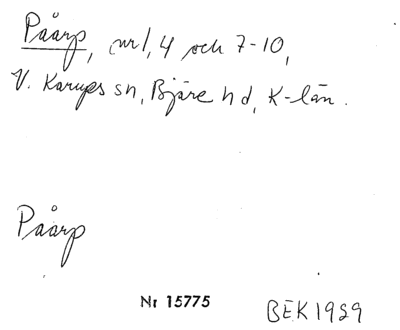 Påarp, nr 1, 4 och 7-10,
V. Karups sn, Bjäre hd, K-län.
Påarp
Nr 15775
BEK 1989